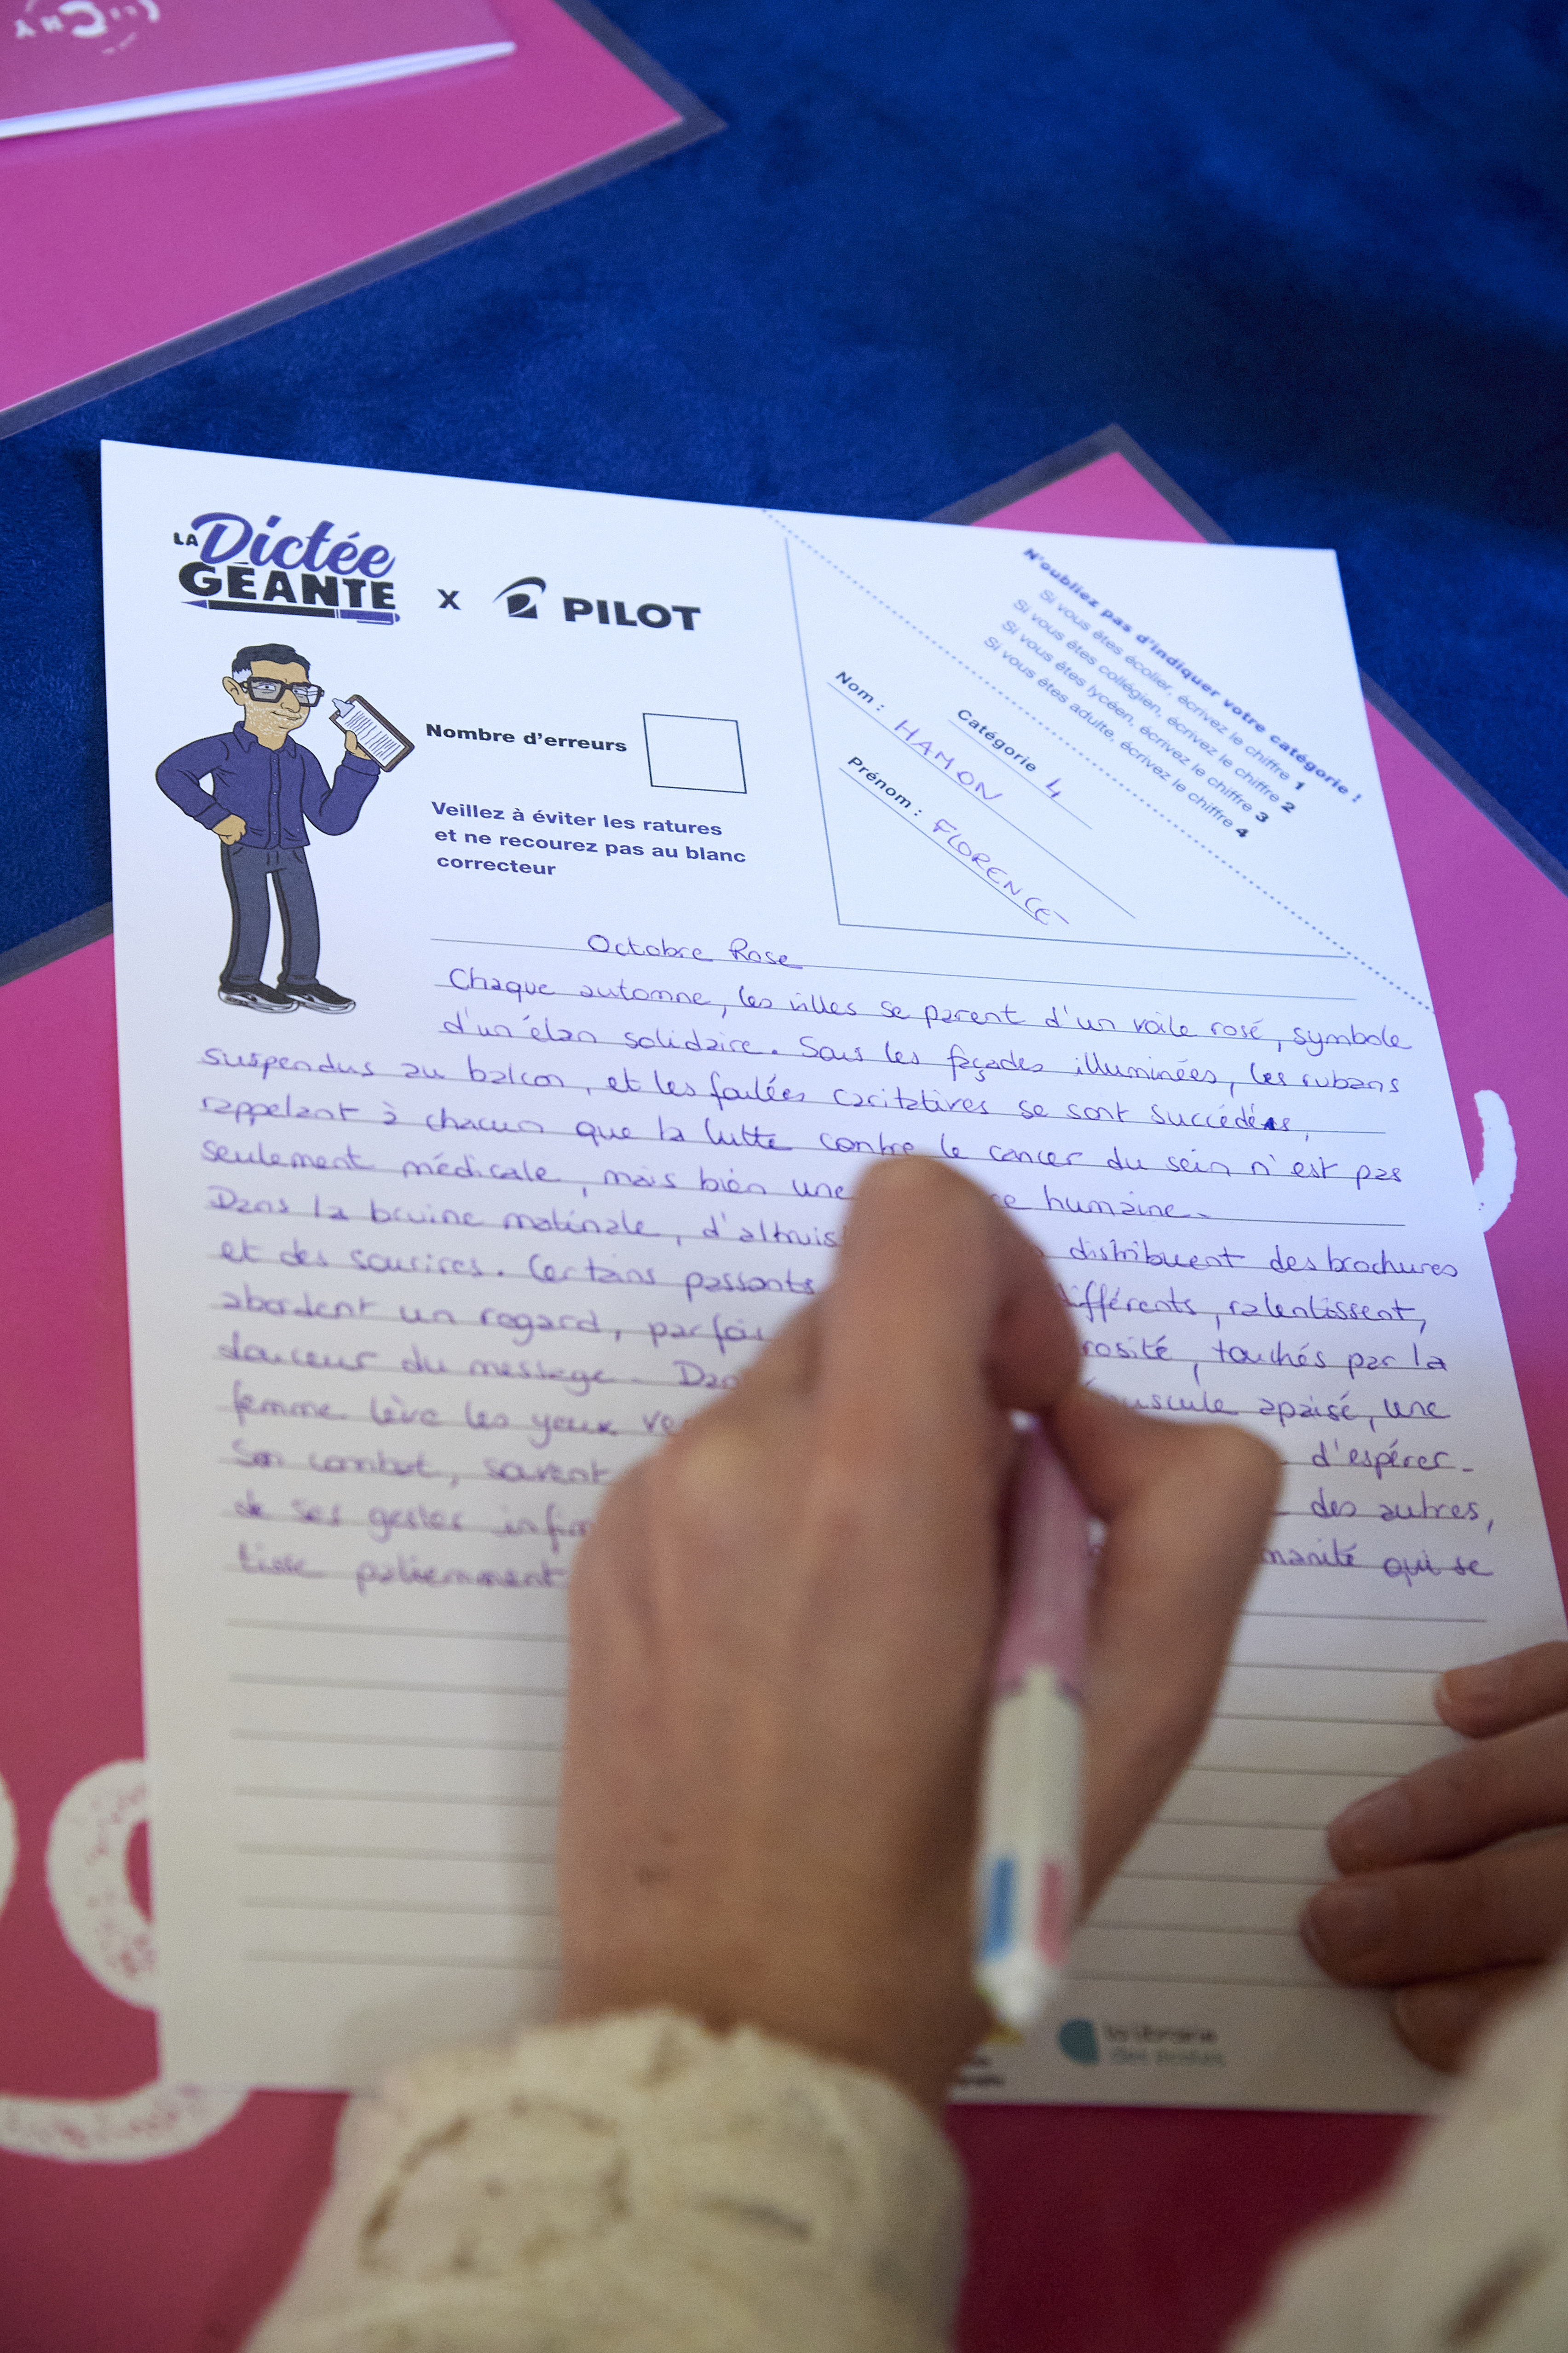 LA Dictée GÉANTE x PILOT
N'oubliez pas d'indiquer votre catégorie !
Si vous êtes écolier, écrivez le chiffre 1
Si vous êtes collégien, écrivez le chiffre 2
Si vous êtes lycéen, écrivez le chiffre 3
Si vous êtes adulte, écrivez le chiffre 4
Catégorie 4
Nom : HAMON
Prénom : FLORENCE
Nombre d'erreurs
Veillez à éviter les ratures
et ne recourez pas au blanc
correcteur
Octobre Rose
Chaque automne, les villes se parent d'un voile rosé, symbole
d'un élan solidaire. Sous les façades illuminées, les rubans
suspendus au balcon, et les foulées caritatives se sont succédés,
rappelant à chacun que la lutte contre le cancer du sein n'est pas
seulement médicale, mais bien une humaine.
Dans la bruine matinale, d'altruis distribuent des brochures
et des sourires. Certains passants différents, ralentissent,
abordent un regard, parfois rosité, touchés par la
douceur du message. Dan puscule apaisé, une
femme lève les yeux ve d'espérer.
Son combat, souvent des autres,
de ses gestes infim manité qui se
tisse patiemment
la librairie
des écoles